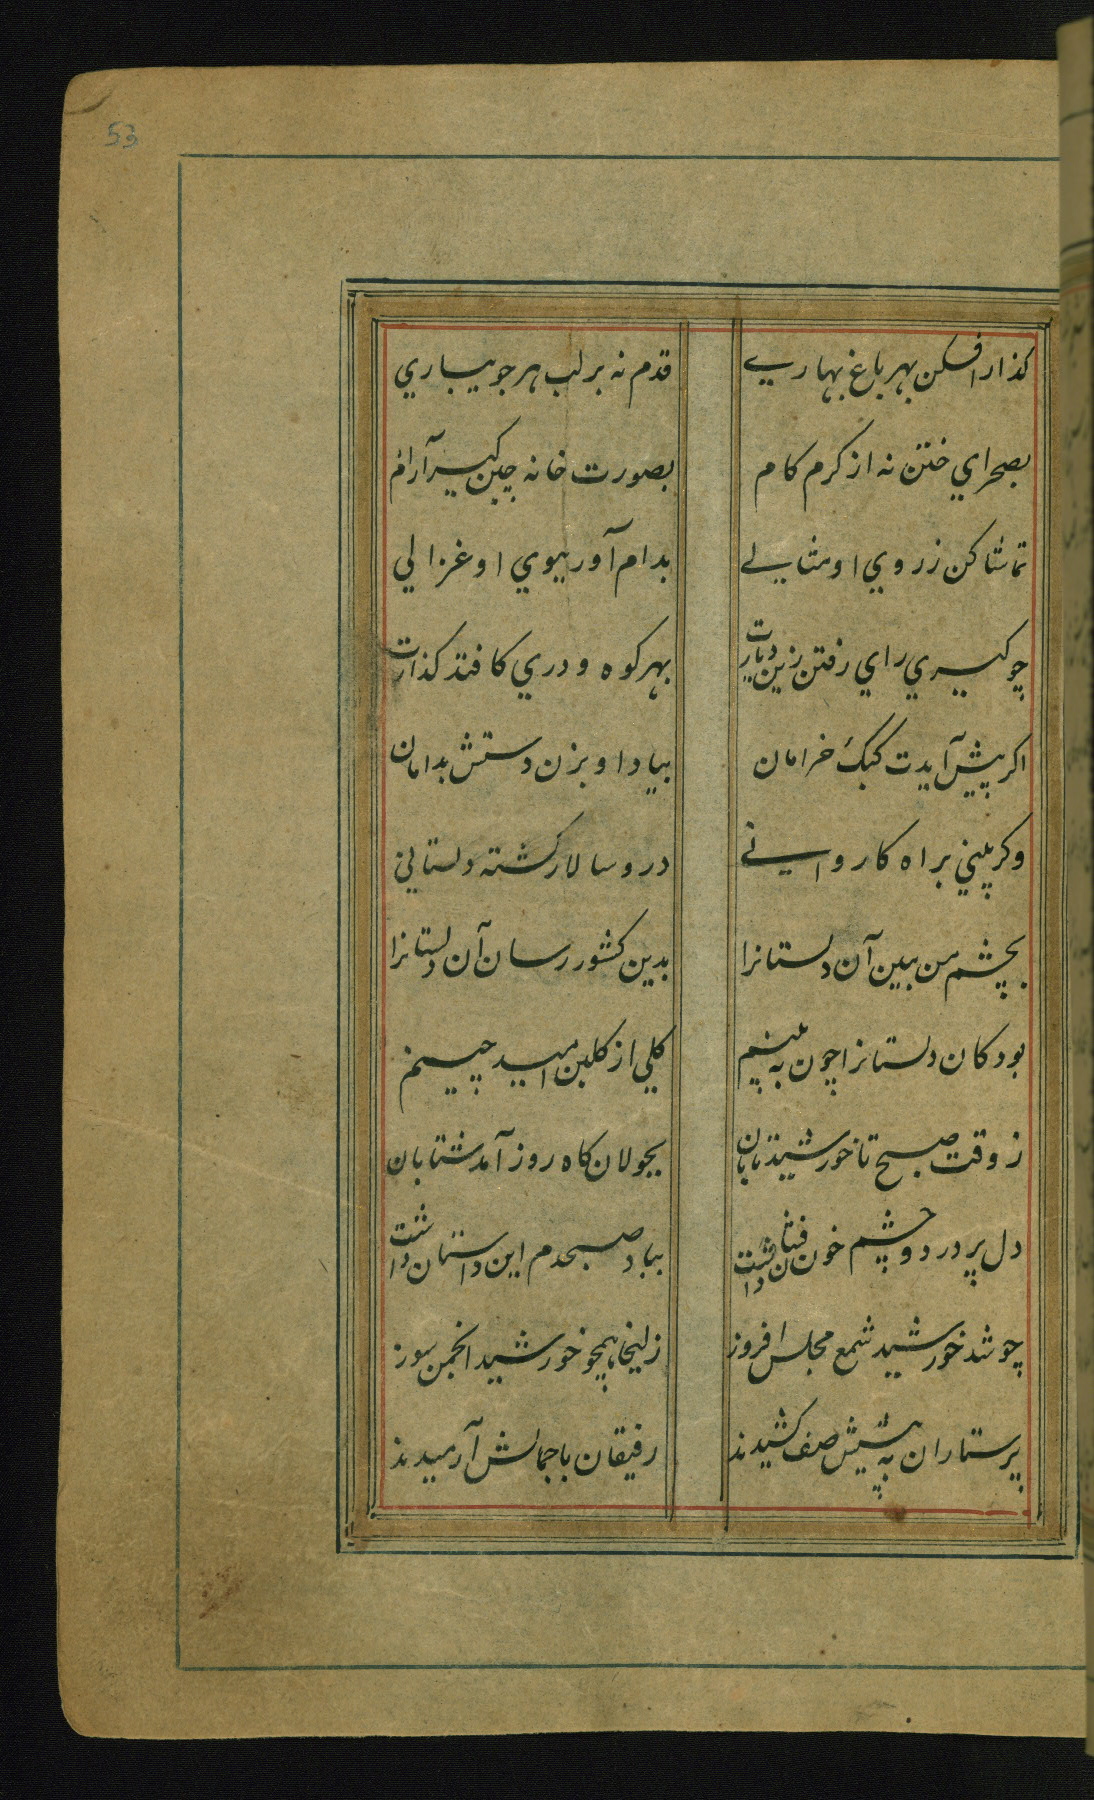 53
گذار افکن بهر باغ بهاری قدم نه بر لب هر جویباری
بصحرای ختن نه از کرم کام بصورت خانه چین گیر آرام
تماشا کن ز روی او مثالی بدام آور ببوی او غزالی
چو گیری رای رفتن زین دیارت بهر کوه و دری کافتد گذارت
اگر پیش آیدت کبک خرامان بیاد او بزن دستش بدامان
وگر بینی براه کاروانی درو سالار گشته دلستانی
بچشم من ببین آن دلستانرا بدین کشور رسان آن دلستانرا
بود کان دلستانرا چون به بینم گلی از گلبن امید چینم
ز وقت صبح تا خورشید تابان بجولان گاه روز آمد شتابان
دل پر درد و چشم خون فشان داشت بباد صبحدم این داستان داشت
چو شد خورشید شمع مجلس افروز زلیخا همچو خورشید انجمن سوز
پرستاران به پیشش صف کشیدند رفیقان با جمالش آرمیدند